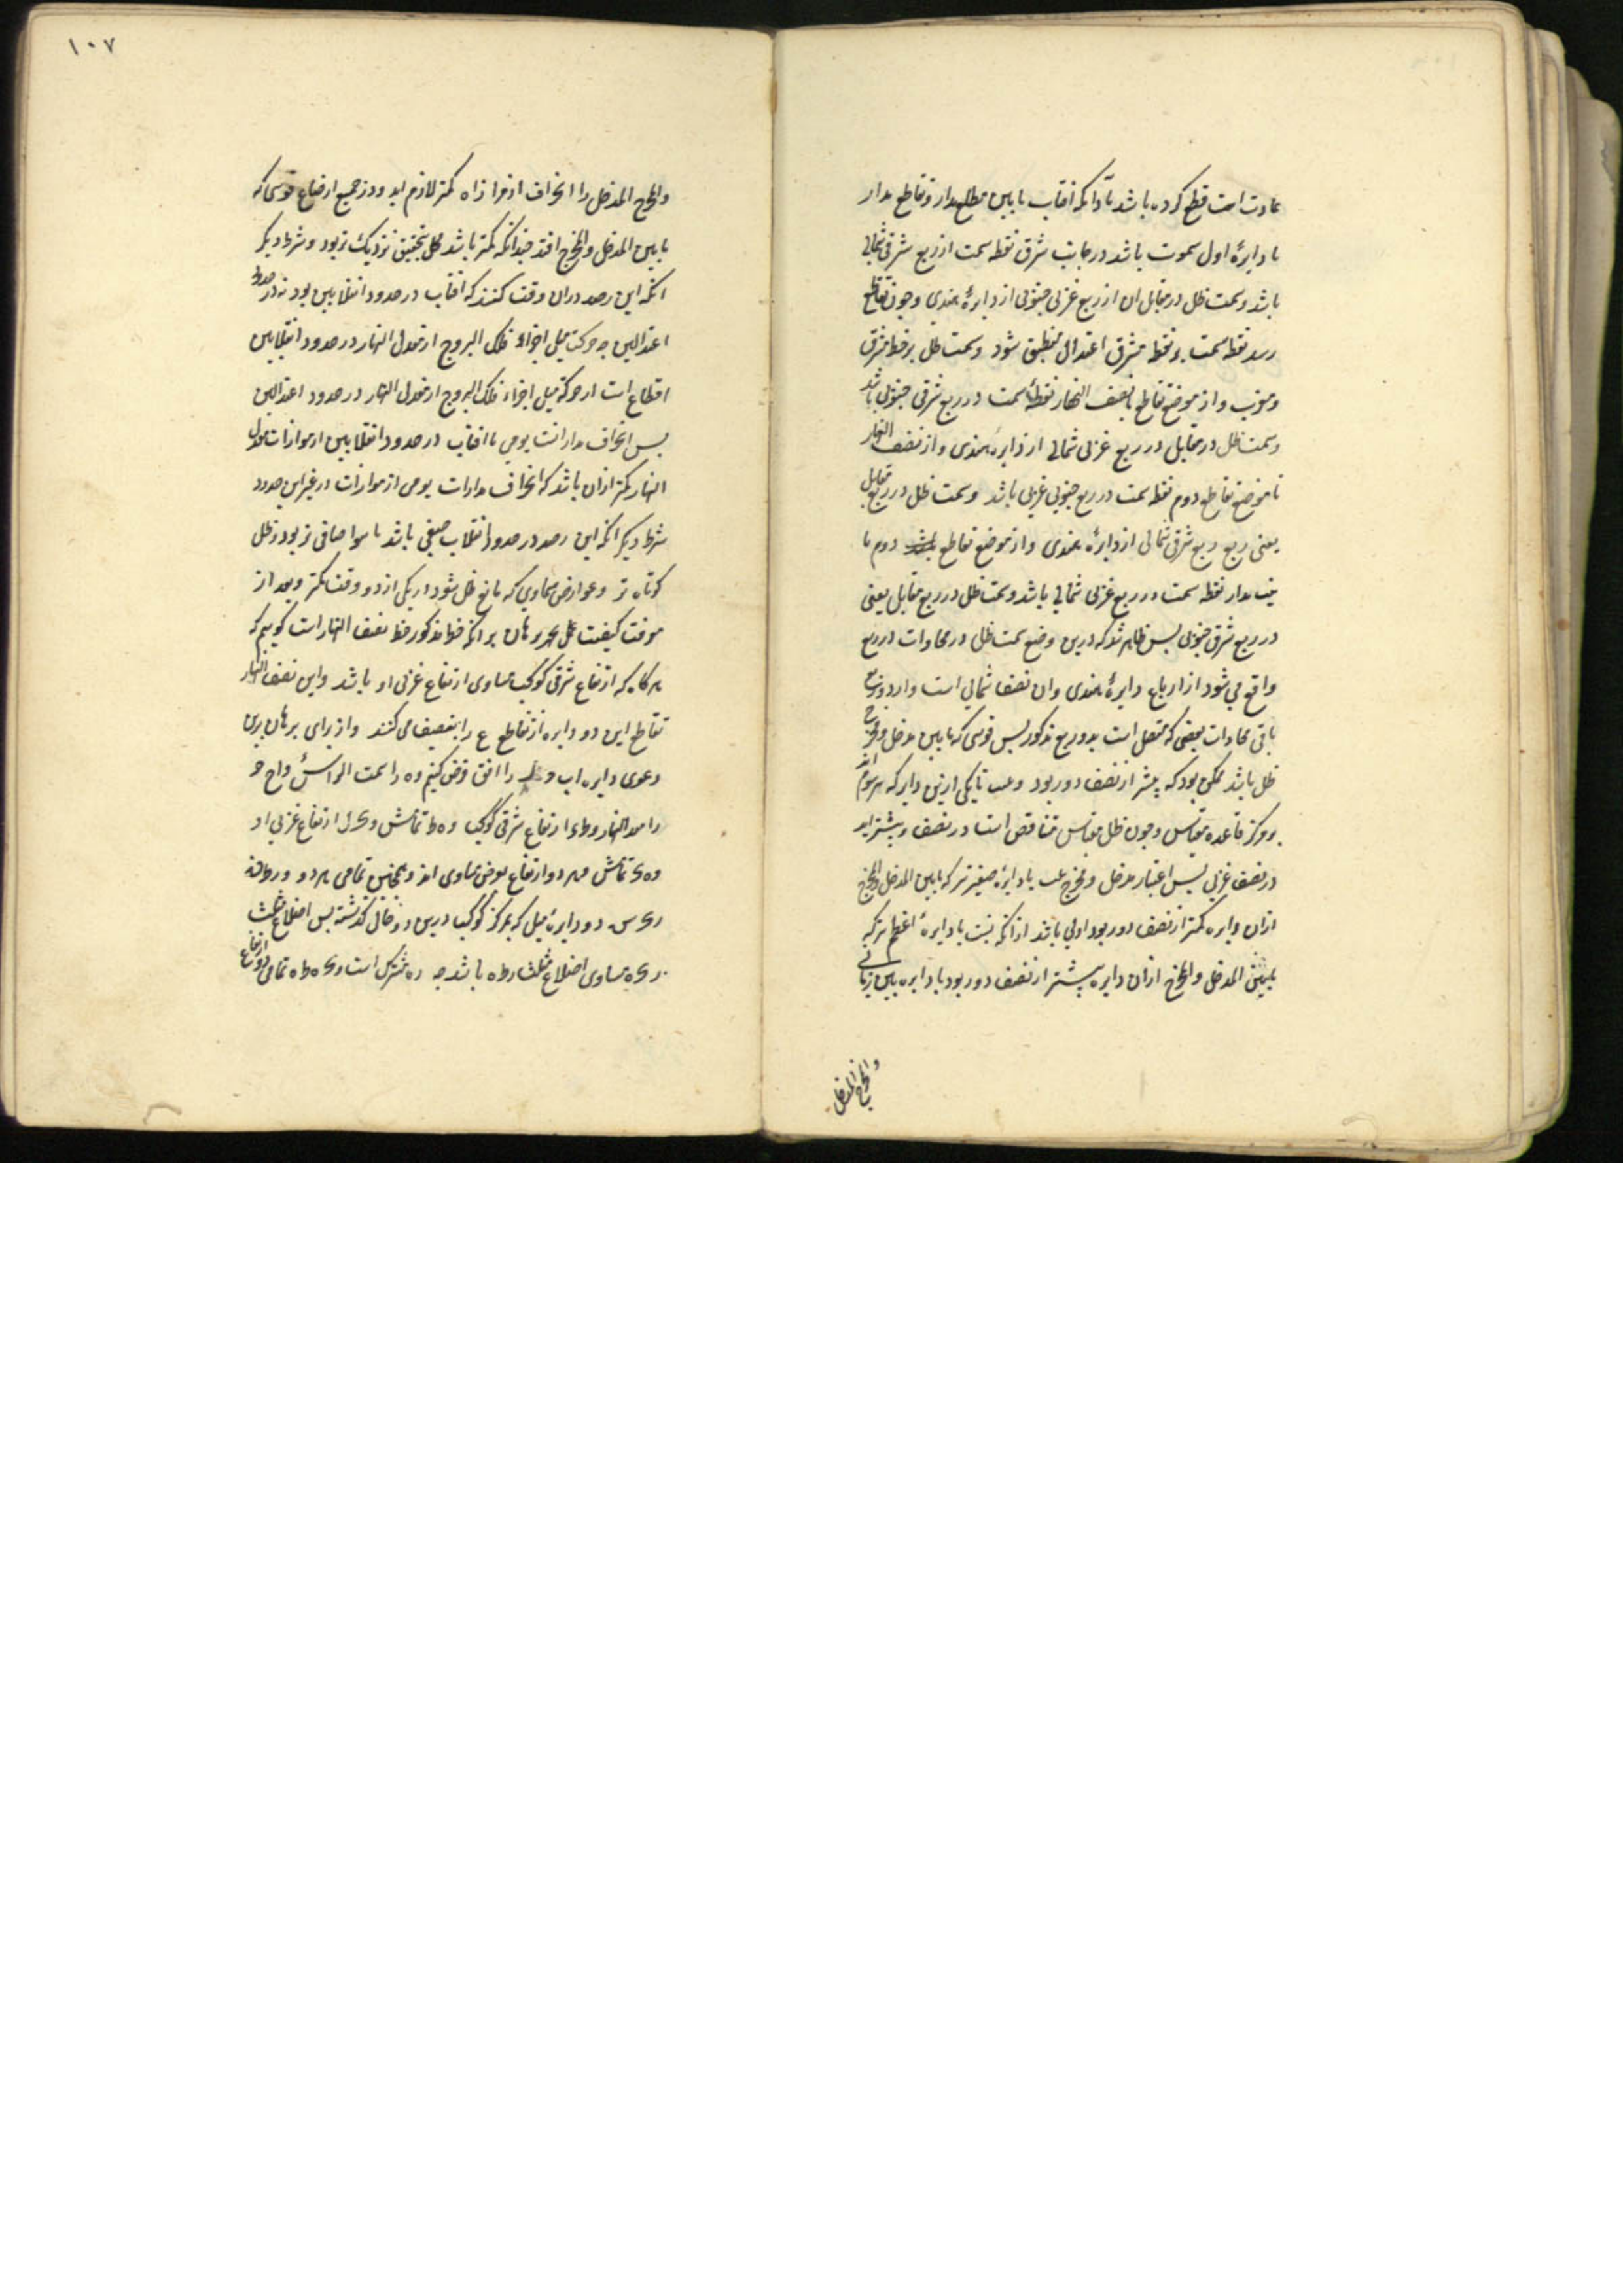 عادت است قطع کرده باشد تا آنکه افتاب بابین مطلع مدار و تقاطع مدار
با دایرهٔ اول سموت باشد در جانب شرق نقطه سمت از ربع شرقی شمالی
باشد و سمت ظل در مقابل ان از ربع غربی جنوبی از دایرهٔ هندی و چون بتقاطع
رسد نقطه سمت بر نقطه مشرق اعتدال منطبق شود و سمت ظل بر خط مشرق
و مغرب و از موضع تقاطع تا نصف النهار نقطهٔ سمت در ربع شرقی جنوبی باشد
و سمت ظل در مقابل در ربع غربی شمالی از دایره هندی و از نصف النهار
تا موضع تقاطع دوم نقطه سمت در ربع جنوبی غربی باشد و سمت ظل در ربع مقابل
یعنی ربع ربع شرقی شمالی از دایرهٔ هندی و از موضع تقاطع دوم تا
مدار نقطه سمت در ربع غربی شمالی باشد و سمت ظل در ربع مقابل یعنی
در ربع شرقی جنوبی بس ظاهر شد که درین وضع سمت ظل در محاذات در ربع
واقع می شود از ارباع دایرهٔ هندی و ان نصف شمالی است و از دو ربع
باقی محاذات بعضی که متصل است بدو ربع مذکور بس قوسی که بابین مدخل و مخرج
ظل باشد ممکن بود که بیشتر از نصف دور بود و هر یکی ازین دوایر که مرسوم اند
بر مرکز قاعده مقیاس و چون ظل مقیاس متناقص است در نصف
در نصف غربی بس اعتبار مدخل و مخرج با دایرهٔ صغیرتر که بابین المدخل والمخرج
ازان دایره کمتر از نصف دور بود اولی باشد از انکه نسبت با دایرهٔ اعظم تر که
بابین المدخل والمخرج ازان دایره بیشتر از نصف دور بود با دایره
والمخرج المدخل
١٠٧
والمخرج المدخل را انحراف از موازاه کمتر لازم اید و در جمیع اوضاع قوسی که
بابین المدخل والمخرج افتد چندانکه کمتر باشد عمل بتحقیق نزدیک تر بود و شرط دیگر
انکه این رصد دران وقت کنند که افتاب در حدود انقلابین بود نه در حدود
اعتدالین چه حرکت میل اجزاء فلک البروج از معدل النهار در حدود انقلابین
از حرکة میل اجزاء فلک البروج از معدل النهار در حدود اعتدالین
بس انحراف مدارات یومی با افتاب در حدود انقلابین از موازات معدل
النهار کمتر ازان باشد که انحراف مدارات یومی از موازات در غیر این حدود
شرط دیگر انکه این رصد در حدود انقلاب صیفی باشد تا هوا صافی تر بود و ظل
کوتاه تر و عوارض سماوی که مانع ظل شود در یکی از دو وقت کمتر و بعد از
معرفت کیفیت عمل برهان بر انکه خط مذکور خط نصف النهار است کوییم که
هر کاه که ارتفاع شرقی کوکب مساوی ارتفاع غربی او باشد و این نصف النهار
تقاطع این دو دایره ارتفاع را بنصیف می کنند و از برای برهان برین
دعوی دایره اب را افق فرض کنیم و ه را سمت الراس
ارتفاع شرقی کوکب و ه ط تمامش ارتفاع غربی او
و ه ی تمامش هر دو ارتفاع بفرض مساوی اند و همچنین تمامی هر دو
دو دایرهٔ میل که بمرکز کوکب درین دو حال کذشته بس اضلاع مثلث
مساوی اضلاع مثلث باشد چه مشترک است و ه ط تمامی دو ارتفاع